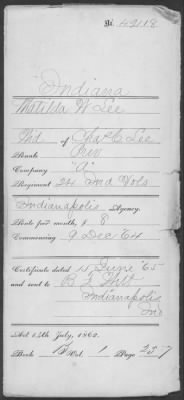 No. 42118
Indiana
Matilda W Lee
Wid. of Chas C Lee
Rank Priv
Company "A"
Regiment 24 Ind Vols
Indianapolis Agency.
Rate per month, $ 8
Commencing 9 Dec '64
Certificate dated 15 June '65
and sent to
Indianapolis
Ind
Act 14th July, 1862.
Book Vol. 1 Page 257